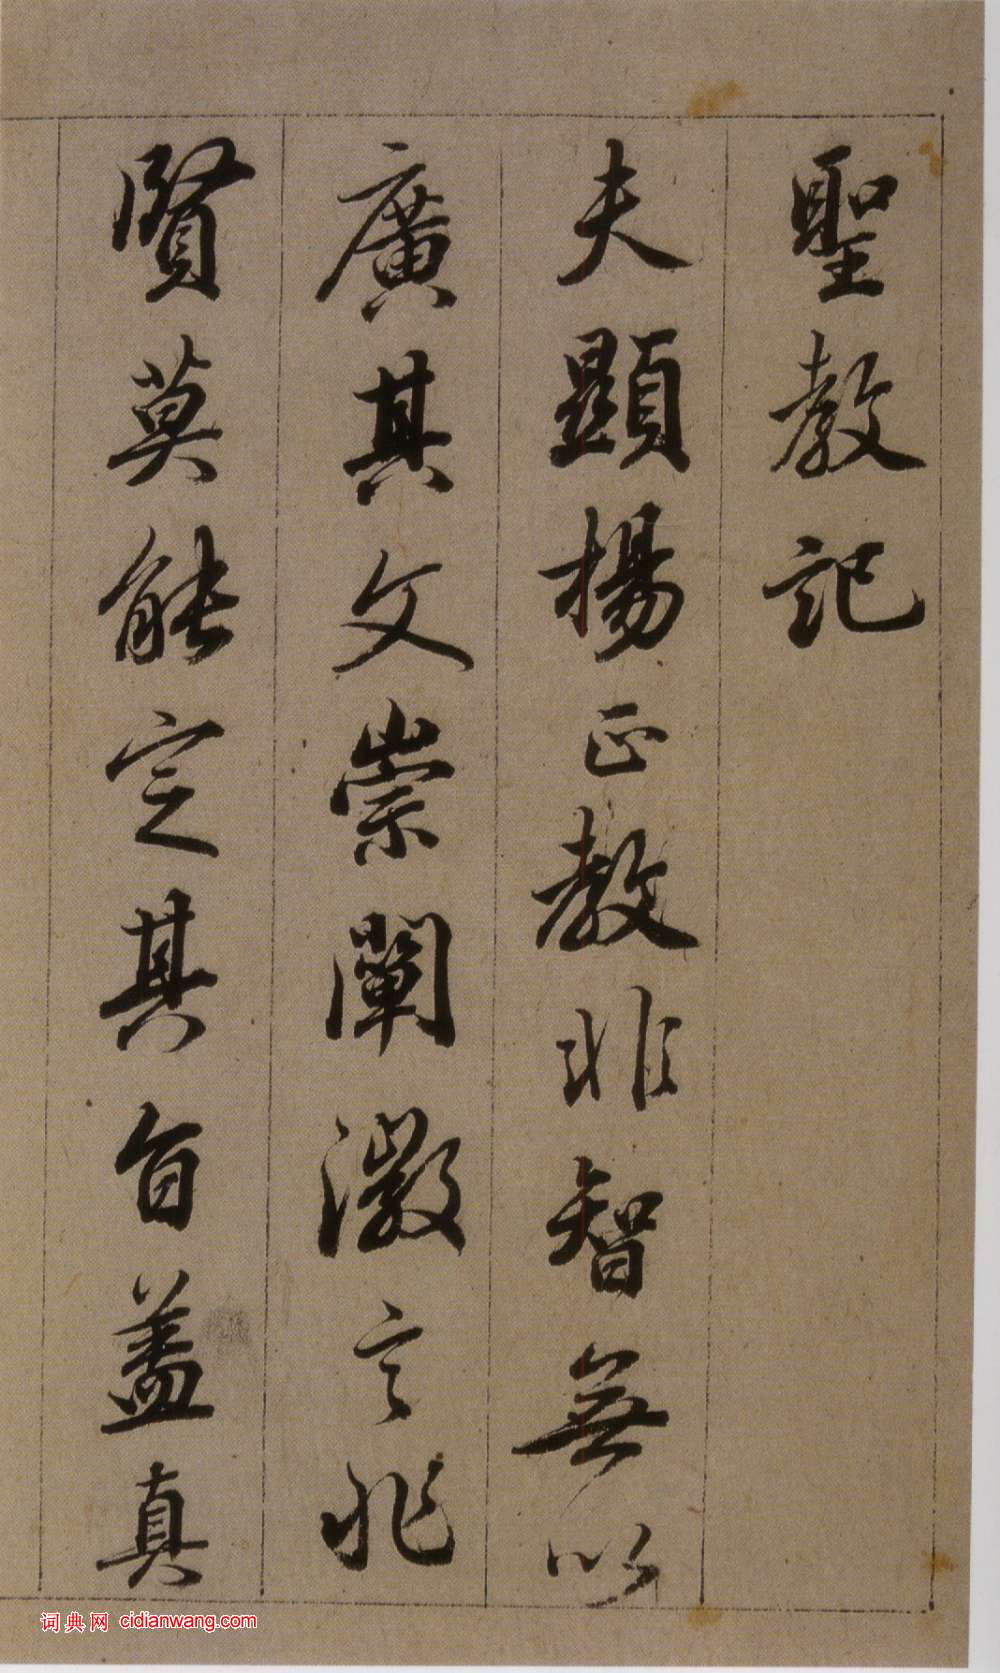 聖教記
夫顯揚正教非智無以
廣其文崇闡微言非
賢莫能定其旨盖真
词典网 cidianwang.com